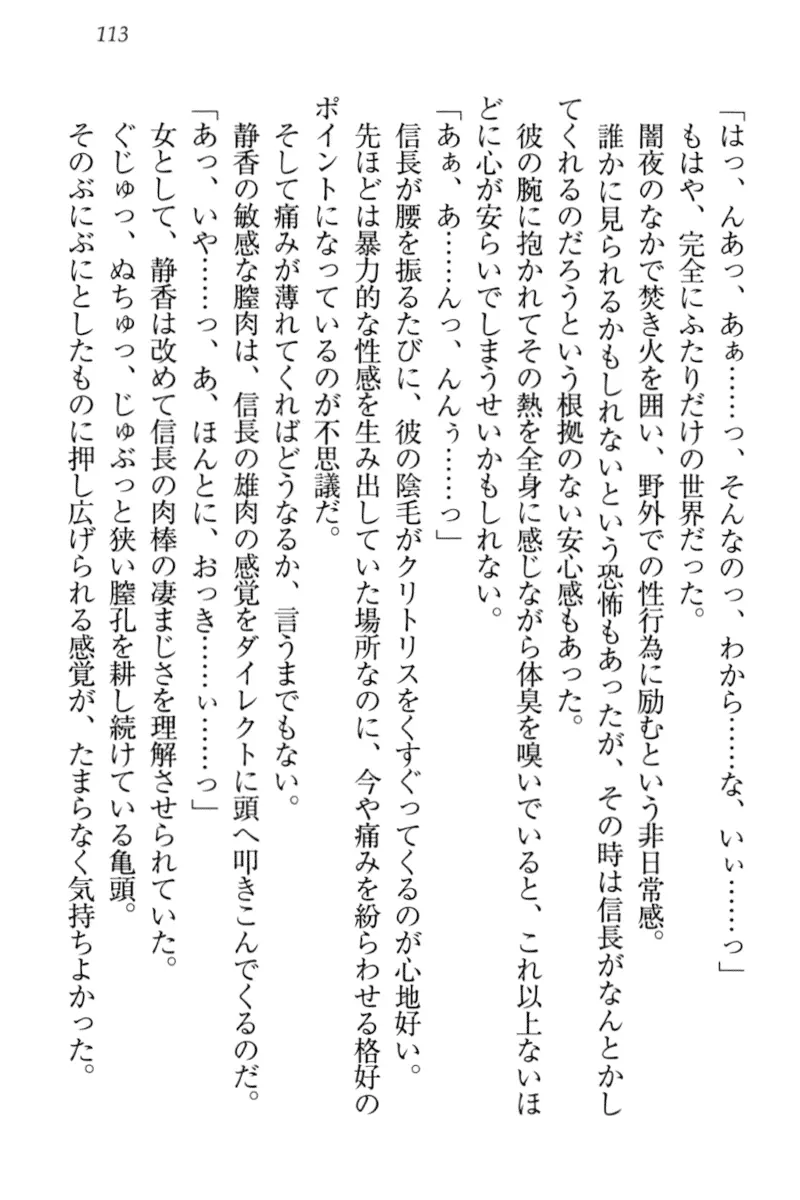 113
「はっ、んあっ、あぁ……っ、そんなのっ、わから……な、いぃ……っ」
もはや、完全にふたりだけの世界だった。
闇夜のなかで焚き火を囲い、野外での性行為に励むという非日常感。
誰かに見られるかもしれないという恐怖もあったが、その時は信長がなんとかし
てくれるのだろうという根拠のない安心感もあった。
彼の腕に抱かれてその熱を全身に感じながら体臭を嗅いでいると、これ以上ないほ
どに心が安らいでしまうせいかもしれない。
「あぁ、あ……んっ、んんぅ……っ」
信長が腰を振るたびに、彼の陰毛がクリトリスをくすぐってくるのが心地好い。
先ほどは暴力的な性感を生み出していた場所なのに、今や痛みを紛らわせる格好の
ポイントになっているのが不思議だ。
そして痛みが薄れてくればどうなるか、言うまでもない。
静香の敏感な膣肉は、信長の雄肉の感覚をダイレクトに頭へ叩きこんでくるのだ。
「あっ、いや……っ、あ、ほんとに、おっき……ぃ……っ」
女として、静香は改めて信長の肉棒の凄まじさを理解させられていた。
ぐじゅっ、ぬちゅっ、じゅぶっと狭い膣孔を耕し続けている亀頭。
そのぶにぶにとしたものに押し広げられる感覚が、たまらなく気持ちよかった。